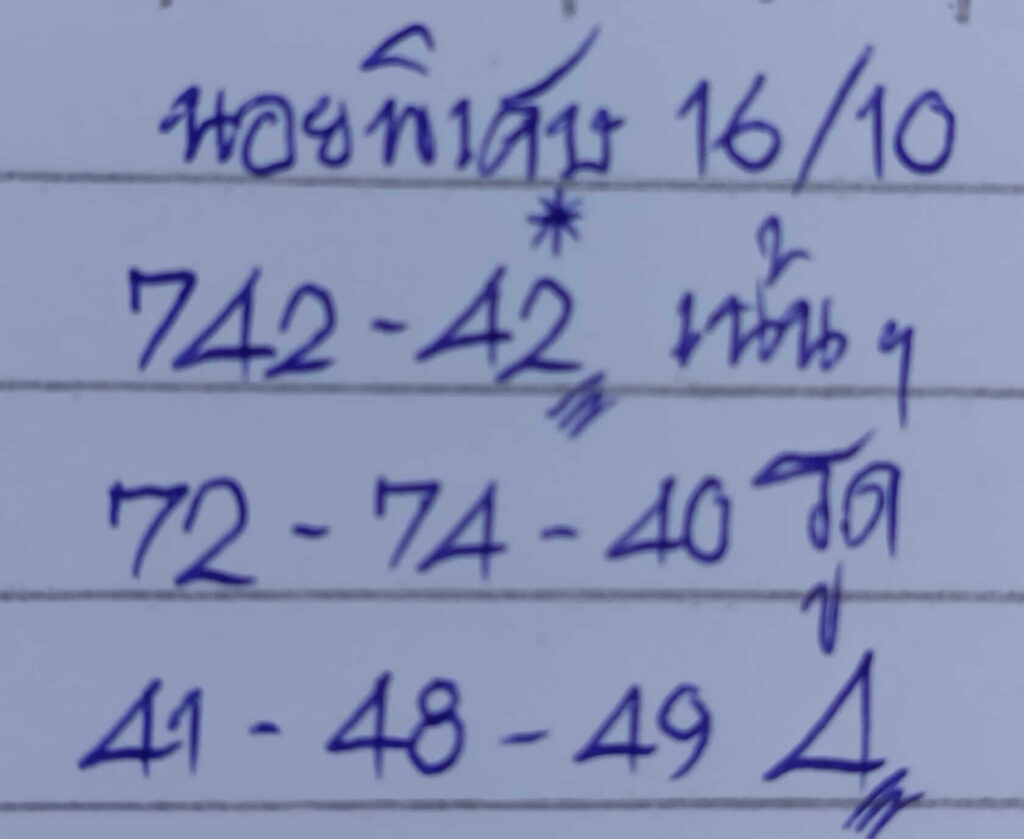 นอยพิเศษ 16/10
*
742 - 42 เน้นๆ
72 - 74 - 40 รูด
41 - 48 - 49 4